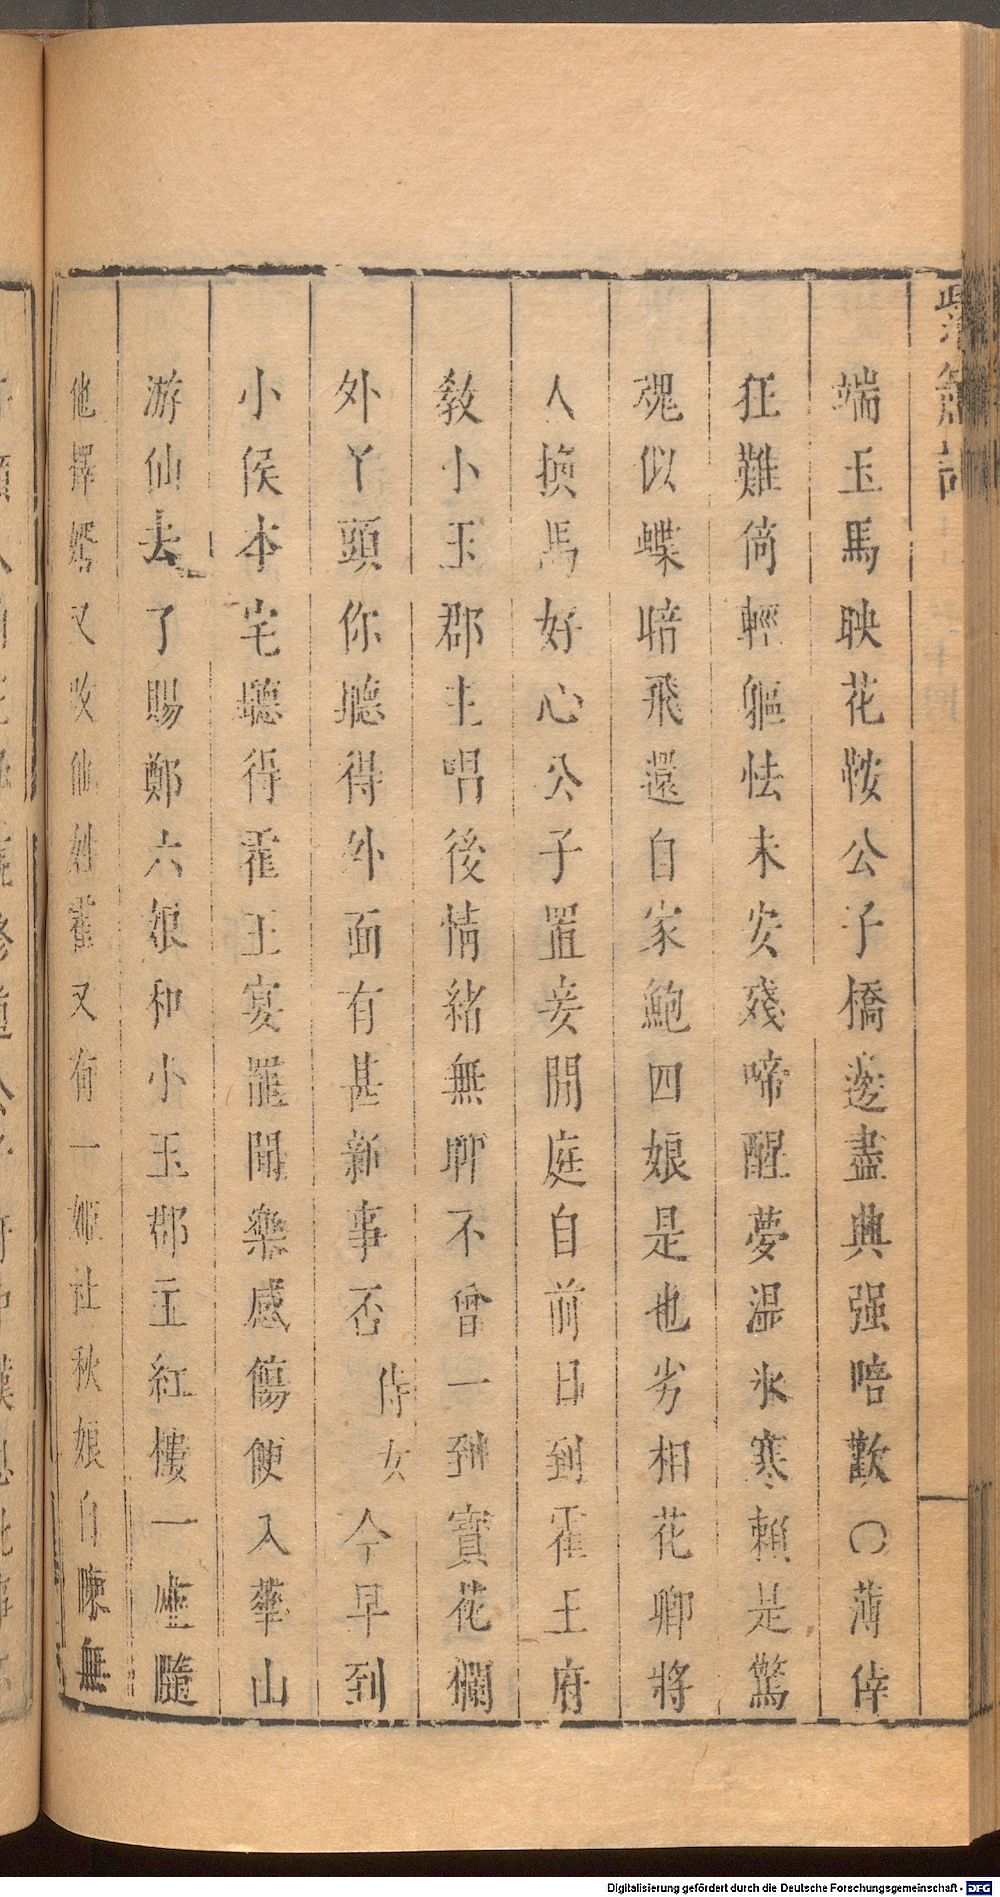 紫簫記
端玉馬映花鞍公子橋邊盡典强唔歡〇薄倖
狂難倚輕軀怯未安殘啼醒夢溫氷寒賴是驚
魂似蝶暗飛還自家鮑四娘是也劣相花卿將
人換馬好心公子置妾閒庭自前日到霍王府
敎小玉郡主唱後情緒無聊不曾一到寶花欄
外丫頭你聽得外面有甚新事否侍女今早到
小侯本宅聽得霍王宴罷聞樂感傷便入華山
游仙去了賜鄭六娘和小玉郡主紅樓一座隨
他擇婿又改仙妙霍又有一姬杜秋娘自陳無
Digitalisierung gefördert durch die Deutsche Forschungsgemeinschaft - DFG